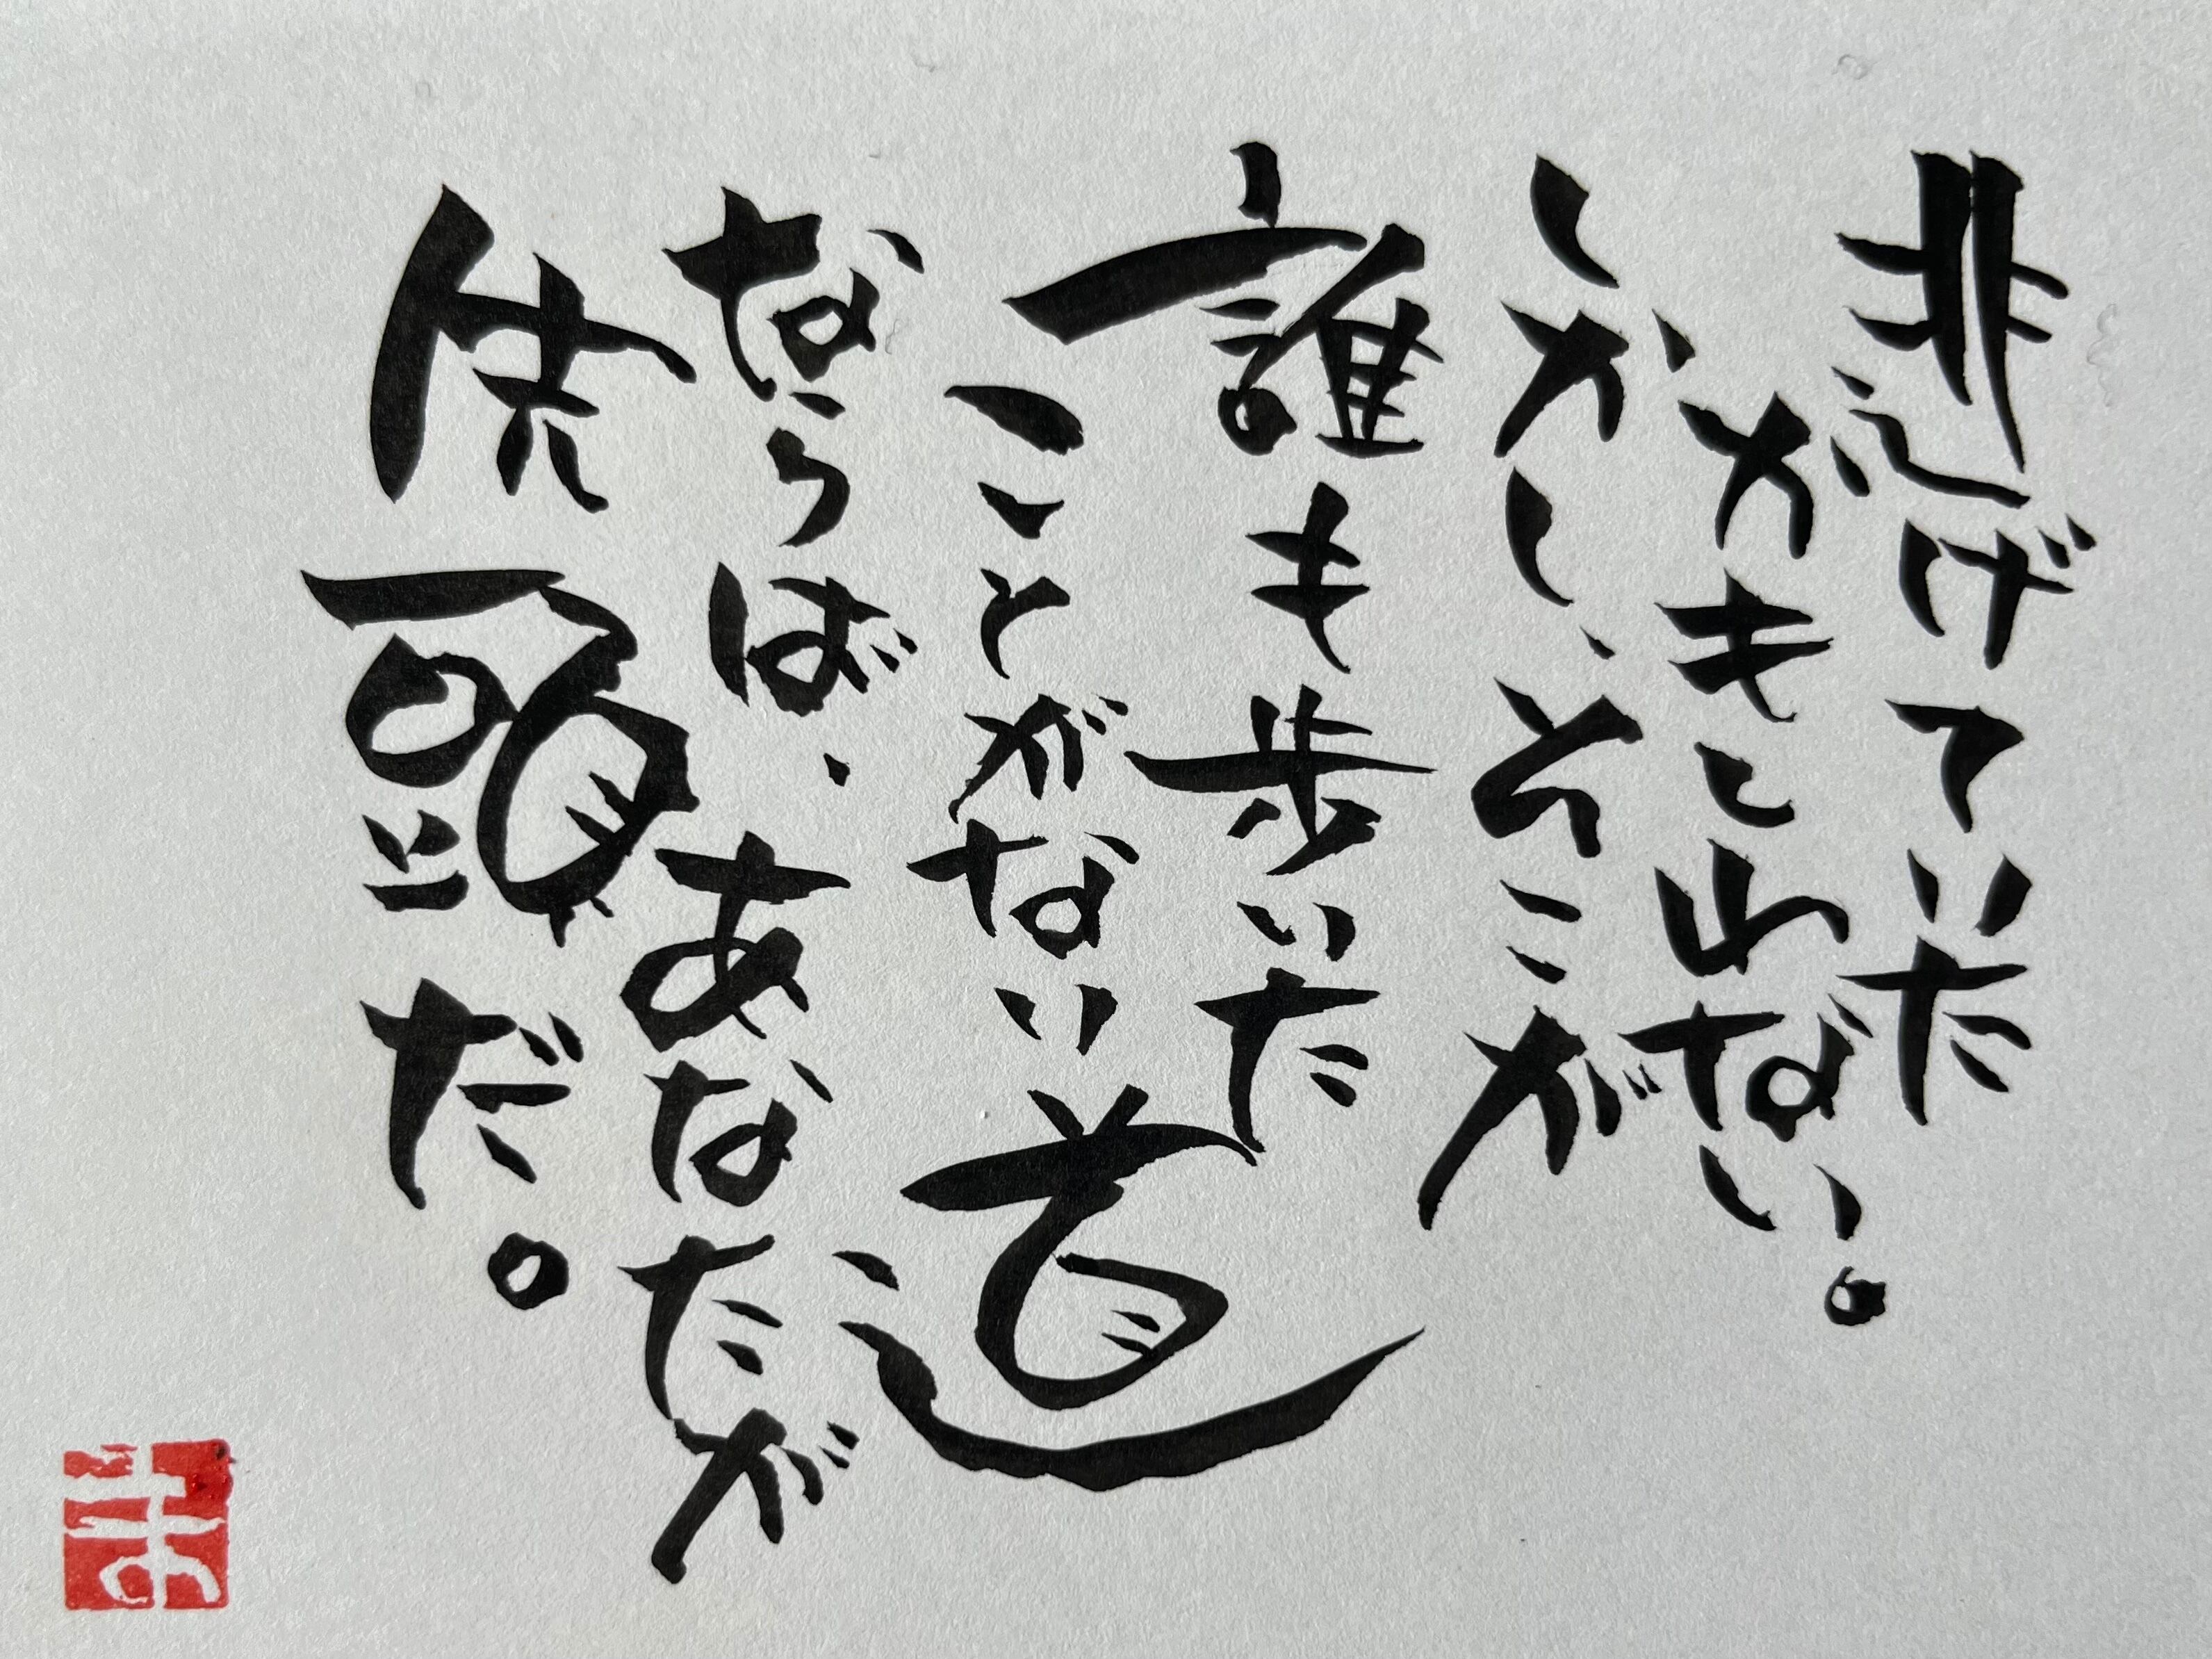 逃げていた
かもしれない。
しかし、そこが
誰も歩いた
ことがない道
ならば、あなたが
先頭だ。